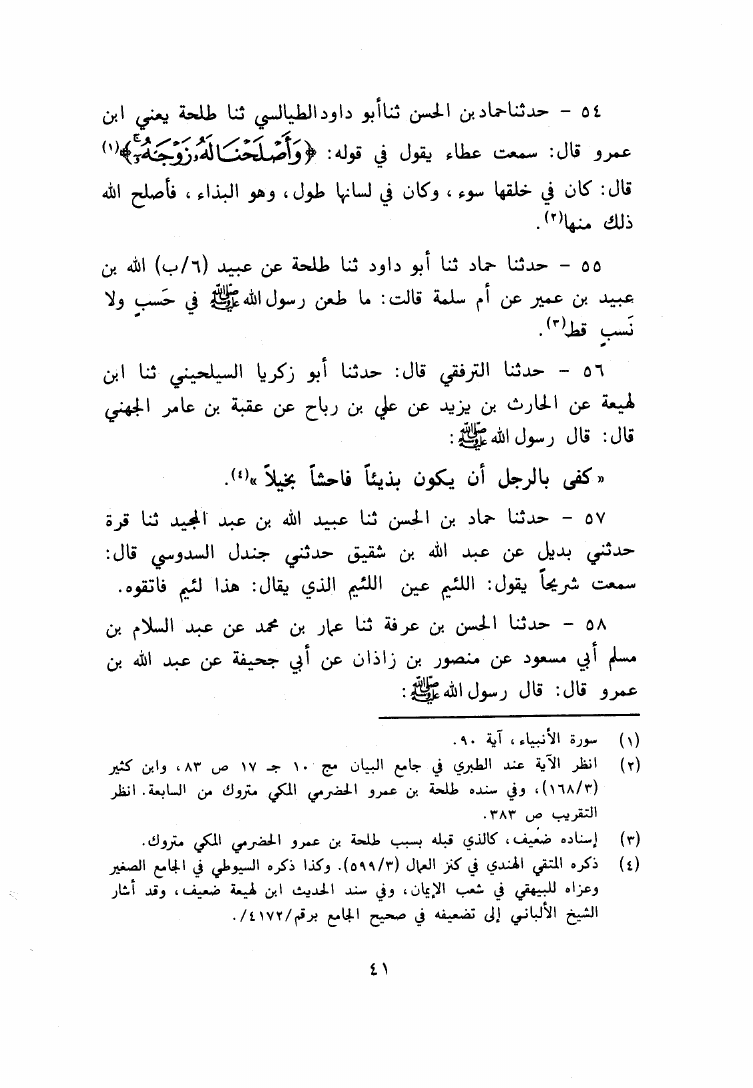 ٥٤ - حدثناحمادبن الحسن ثناأبو داودالطيالسي ثنا طلحة يعني ابن
عمرو قال: سمعت عطاء يقول في قوله: ﴿وَأَصْلَحْنَا لَهُ زَوْجَهُ﴾(١)
قال: كان في خلقها سوء، وكان في لسانها طول، وهو البذاء، فأصلح الله
ذلك منها(٢).
٥٥ - حدثنا حماد ثنا أبو داود ثنا طلحة عن عبيد (٦/ب) الله بن
عبيد بن عمير عن أم سلمة قالت: ما طعن رسول الله ﷺ في حَسبٍ ولا
نَسبٍ قط(٣).
٥٦ - حدثنا الترفقي قال: حدثنا أبو زكريا السيلحيني ثنا ابن
لهيعة عن الحارث بن يزيد عن علي بن رباح عن عقبة بن عامر الجهني
قال: قال رسول الله ﷺ:
«كفى بالرجل أن يكون بذيئاً فاحشاً بخيلاً»(٤).
٥٧ - حدثنا حماد بن الحسن ثنا عبيد الله بن عبد المجيد ثنا قرة
حدثني بديل عن عبد الله بن شقيق حدثني جندل السدوسي قال:
سمعت شريحاً يقول: اللئيم عين اللئيم الذي يقال: هذا لئيم فاتقوه.
٥٨ - حدثنا الحسن بن عرفة ثنا عمار بن محمد عن عبد السلام بن
مسلم أبي مسعود عن منصور بن زاذان عن أبي جحيفة عن عبد الله بن
عمرو قال: قال رسول الله ﷺ:
(١) سورة الأنبياء، آية ٩٠.
(٢) انظر الآية عند الطبري في جامع البيان مج ١٠ جـ ١٧ ص ٨٣، وابن كثير
(١٦٨/٣)، وفي سنده طلحة بن عمرو الحضرمي المكي متروك من السابعة. انظر
التقريب ص ٣٨٣.
(٣) إسناده ضعيف، كالذي قبله بسبب طلحة بن عمرو الحضرمي المكي متروك.
(٤) ذكره المتقي الهندي في كنز العمال (٥٩٩/٣). وكذا ذكره السيوطي في الجامع الصغير
وعزاه للبيهقي في شعب الإيمان، وفي سند الحديث ابن لهيعة ضعيف، وقد أشار
الشيخ الألباني إلى تضعيفه في صحيح الجامع برقم/٤١٧٢/.
٤١